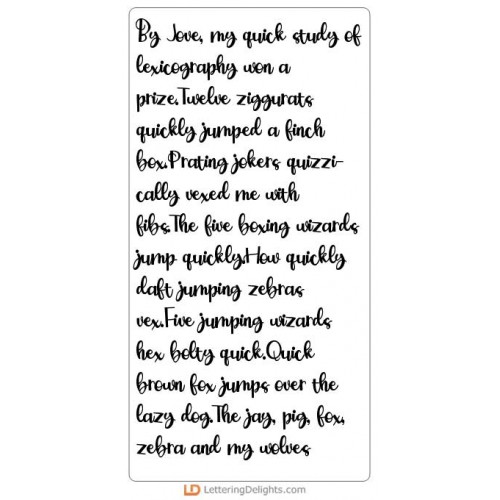 By Jove, my quick study of
lexicography won a
prize.Twelve ziggurats
quickly jumped a finch
box.Prating jokers quizzi-
cally vexed me with
fibs.The five boxing wizards
jump quickly.How quickly
daft jumping zebras
vex.Five jumping wizards
hex bolty quick.Quick
brown fox jumps over the
lazy dog.The jay, pig, fox,
zebra and my wolves
LD LetteringDelights.com